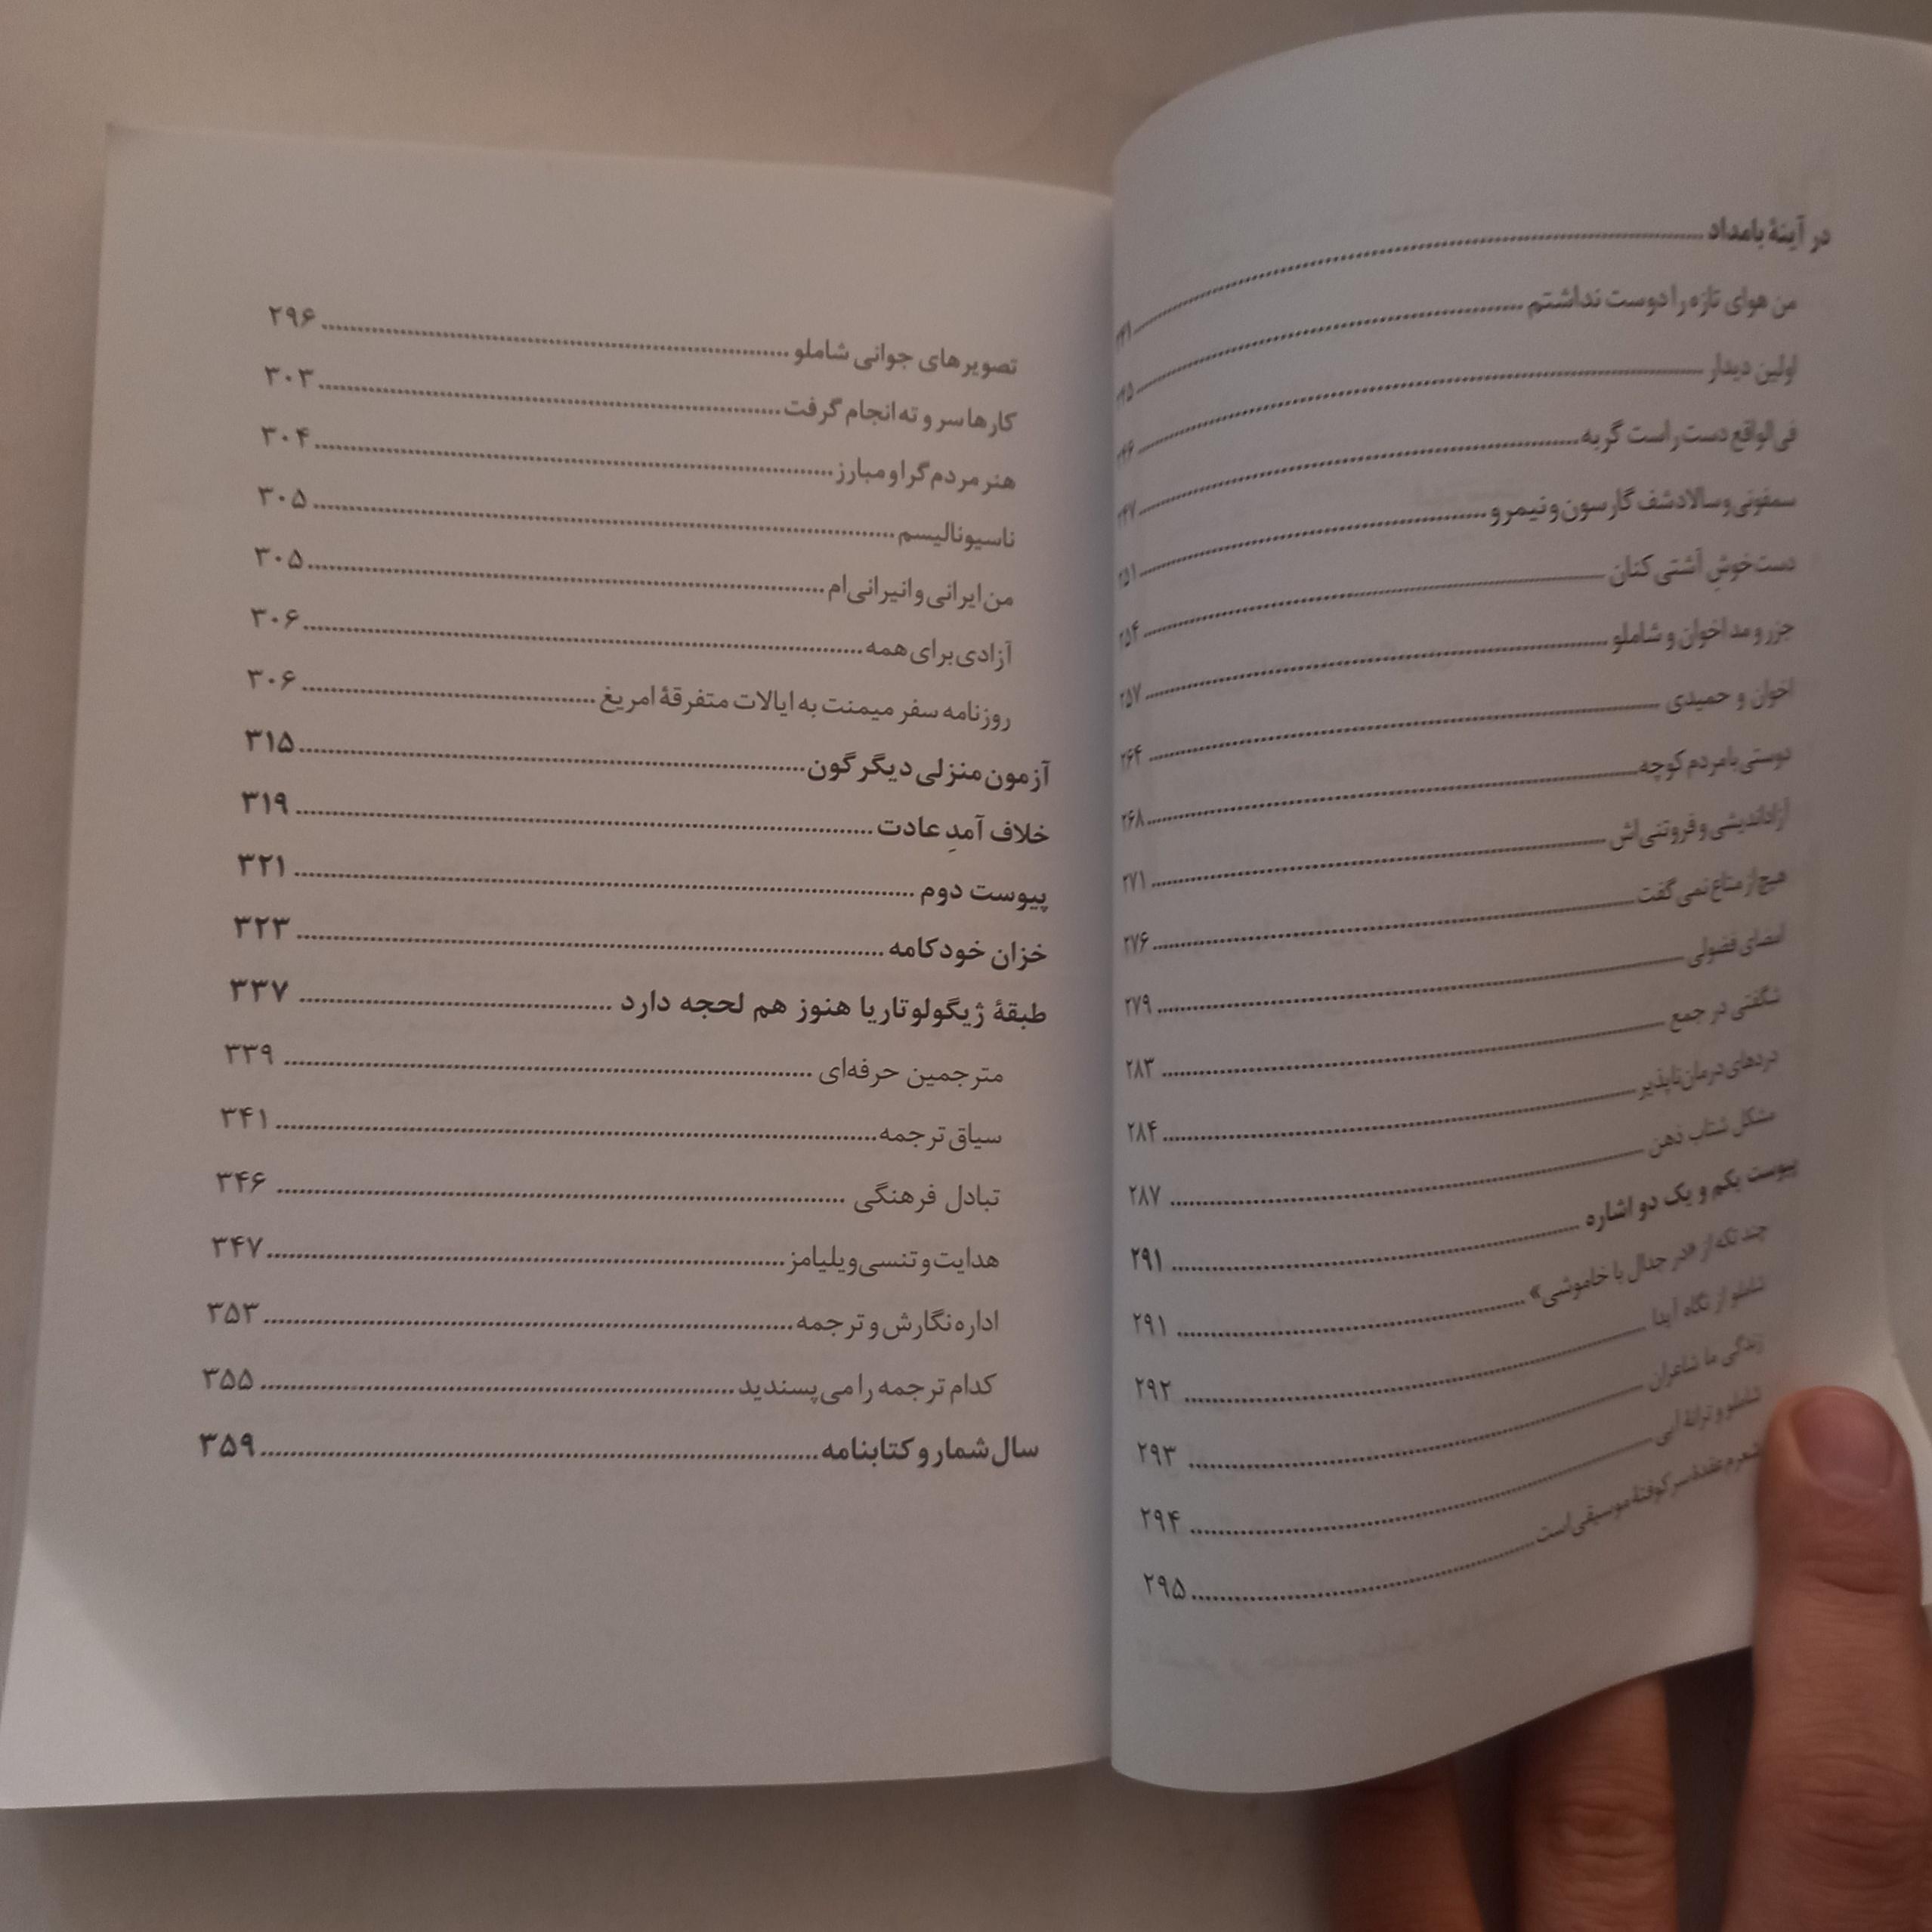 در آینهٔ بامداد ........ ۲۴۱
من هوای تازه را دوست نداشتم ........ ۲۴۵
اولین دیدار ........ ۲۴۶
فی‌الواقع دست راست گربه ........ ۲۴۷
سمفونی و سالاد شف گارسون و نیمرو ........ ۲۵۱
دست‌خوشِ آشتی کنان ........ ۲۵۴
جزر و مد اخوان و شاملو ........ ۲۵۷
اخوان و حمیدی ........ ۲۶۴
دوستی با مردم کوچه ........ ۲۶۸
آزاداندیشی و فروتنی‌اش ........ ۲۷۱
هیچ از متاع نمی‌گفت ........ ۲۷۶
امضای فضولی ........ ۲۷۹
شگفتی در جمع ........ ۲۸۳
دردهای درمان‌ناپذیر ........ ۲۸۴
مشکل شتاب ذهن ........ ۲۸۷
پیوست یکم و یک دو اشاره ........ ۲۹۱
چند تکه از «در جدال با خاموشی» ........ ۲۹۱
شاملو از نگاه آیدا ........ ۲۹۲
زندگی ما شاعران ........ ۲۹۳
شاملو و ترانهٔ آبی ........ ۲۹۴
شعرم عقدهٔ سرکوفتهٔ موسیقی است ........ ۲۹۵
تصویرهای جوانی شاملو ........ ۲۹۶
کارها سر و ته انجام گرفت ........ ۳۰۳
هنر مردم‌گرا و مبارز ........ ۳۰۴
ناسیونالیسم ........ ۳۰۵
من ایرانی و انیرانی‌ام ........ ۳۰۵
آزادی برای همه ........ ۳۰۶
روزنامه سفر میمنت به ایالات متفرقهٔ امریغ ........ ۳۰۶
آزمون منزلی دیگرگون ........ ۳۱۵
خلاف آمدِ عادت ........ ۳۱۹
پیوست دوم ........ ۳۲۱
خزان خودکامه ........ ۳۲۳
طبقهٔ ژیگولوتاریا هنوز هم لحجه دارد ........ ۳۳۷
مترجمین حرفه‌ای ........ ۳۳۹
سیاق ترجمه ........ ۳۴۱
تبادل فرهنگی ........ ۳۴۶
هدایت و تنسی ویلیامز ........ ۳۴۷
اداره نگارش و ترجمه ........ ۳۵۳
کدام ترجمه را می‌پسندید ........ ۳۵۵
سال‌شمار و کتابنامه ........ ۳۵۹